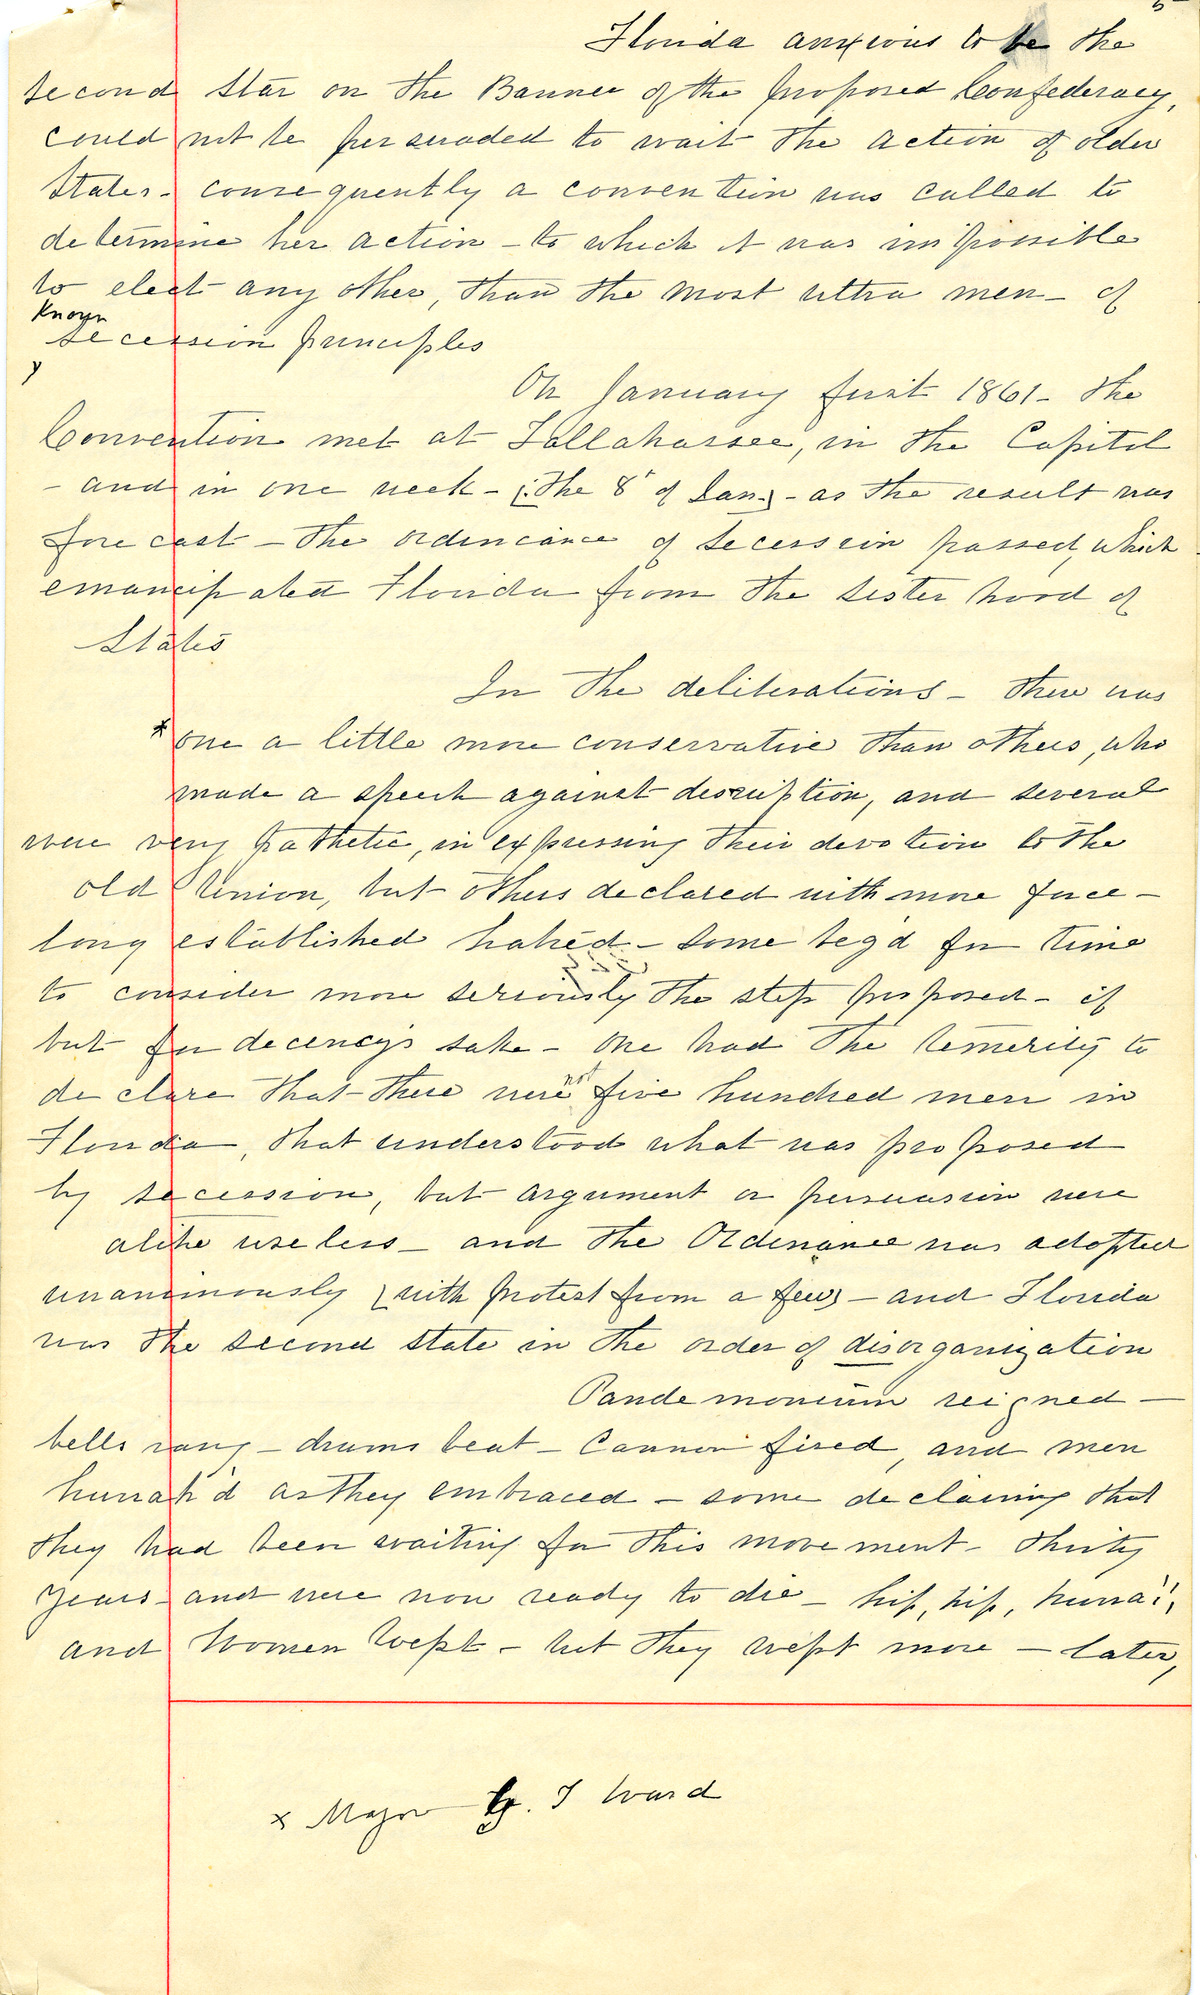 5
Florida anxious to be the
second star on the Banner of the proposed Confederacy,
could not be persuaded to wait the action of older
States - consequently a convention was called to
determine her action - to which it was impossible
to elect any other, than the most ultra men - of
Known
secession principles
On January first 1861 - the
Convention met at Tallahassee, in the Capitol
- and in one week - (the 8" of Jan) - as the result was
fore cast - the ordinance of secession passed, which
emancipated Florida from the sister hood of
States
In the deliberations - there was
* one a little more conservative than others, who
made a speech against descruption, and several
were very pathetic, in expressing their devotion to the
old Union, but others declared with more force -
long established hatred - some beg'd for time
to consider more seriously the step proposed - if
but for decency's sake - One had the temerity to
not
declare that there were five hundred men in
Florida, that understood what was proposed
by secession, but argument or persuasion were
alike useless - and the Ordinance was adopted
unanimously (with protest from a few) - and Florida
was the second state in the order of disorganization
Pandemonium reigned -
bells rang - drums beat - Cannon fired, and men
hurrah'd as they embraced - some declaring that
they had been waiting for this movement - thirty
years - and were now ready to die - hip, hip, hurra!,
and Women Wept - but they wept more - later,
x Major G. T Ward